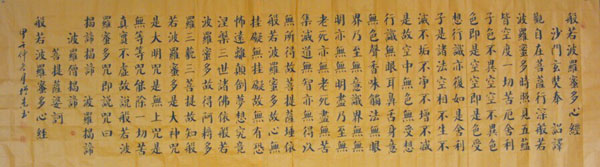 般若波羅蜜多心經
沙門玄奘奉 詔譯
觀自在菩薩行深般若
波羅蜜多時照見五蘊
皆空度一切苦厄舍利
子色不異空空不異色
色即是空空即是色受
想行識亦復如是舍利
子是諸法空相不生不
滅不垢不淨不增不減
是故空中無色無受想
行識無眼耳鼻舌身意
無色聲香味觸法無眼
界乃至無意識界無無
明亦無無明盡乃至無
老死亦無老死盡無苦
集滅道無智亦無得以
無所得故菩提薩埵依
般若波羅蜜多故心無
挂礙無挂礙故無有恐
怖遠離顛倒夢想究竟
涅槃三世諸佛依般若
波羅蜜多故得阿耨多
羅三藐三菩提故知般
若波羅蜜多是大神咒
是大明咒是無上咒是
無等等咒能除一切苦
真實不虛故說般若波
羅蜜多咒即說咒曰
揭諦揭諦 波羅揭諦
波羅僧揭諦
菩提薩婆訶
般若波羅蜜多心經
甲午仲 書